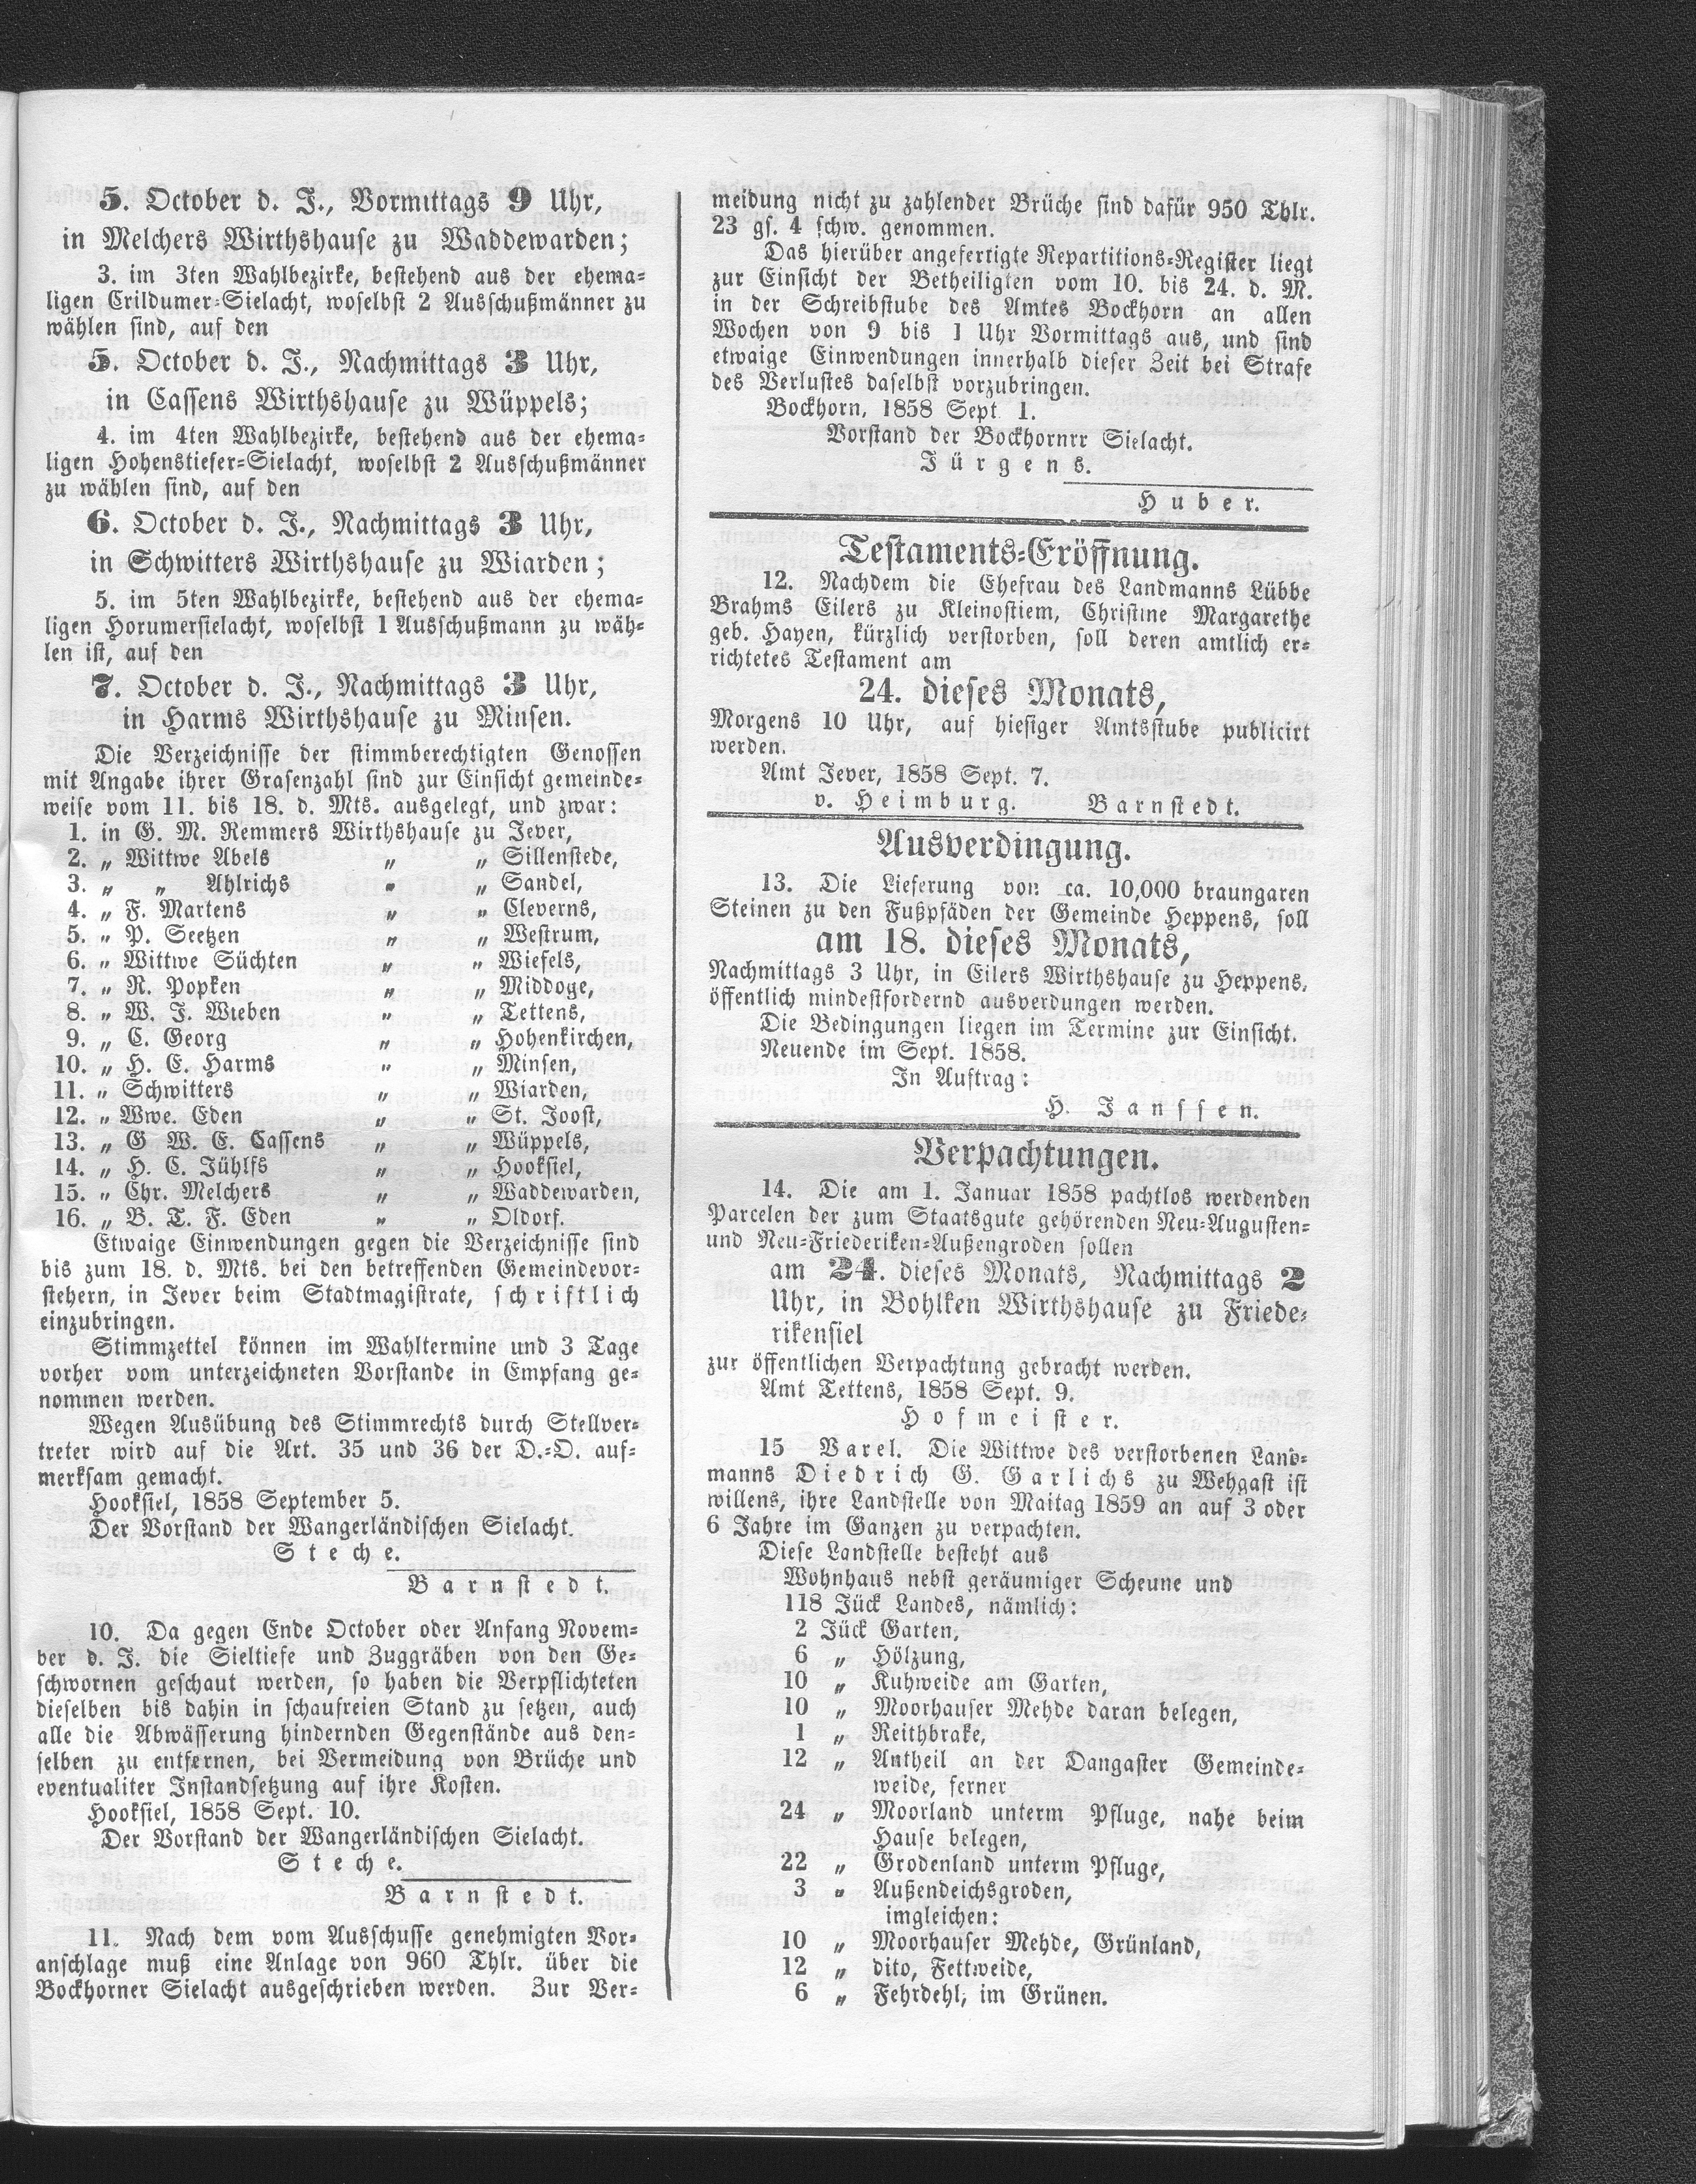 5. October d. J., Vormittags 9 Uhr,
in Melchers Wirthshause zu Waddewarden;
3. im 3ten Wahlbezirke, bestehend aus der ehema-
ligen Crildumer-Sielacht, woselbst 2 Ausschußmänner zu
wählen sind, auf den
5. October d. J., Nachmittags 3 Uhr,
in Cassens Wirthshause zu Wüppels;
4. im 4ten Wahlbezirke, bestehend aus der ehema-
ligen Hohenstiefer-Sielacht, woselbst 2 Ausschußmänner
zu wählen sind, auf den
6. October d. J., Nachmittags 3 Uhr,
in Schwitters Wirthshause zu Wiarden;
5. im 5ten Wahlbezirke, bestehend aus der ehema-
ligen Horumersielacht, woselbst 1 Ausschußmann zu wäh-
len ist, auf den
7. October d. J., Nachmittags 3 Uhr,
in Harms Wirthshause zu Minsen.
Die Verzeichnisse der stimmberechtigten Genossen
mit Angabe ihrer Grasenzahl sind zur Einsicht gemeinde-
weise vom 11. bis 18. d. Mts. ausgelegt, und zwar:
1. in G. M. Remmers Wirthshause zu Jever,
2. „ Wittwe Abels „ „ Sillenstede,
3. „ „ Ahlrichs „ „ Sandel,
4. „ F. Martens „ „ Cleverns,
5. „ P. Seetzen „ „ Westrum,
6. „ Wittwe Süchten „ „ Wiefels,
7. „ R. Popken „ „ Middoge,
8. „ W. J. Wieben „ „ Tettens,
9. „ C. Georg „ „ Hohenkirchen,
10. „ H. E. Harms „ „ Minsen,
11. „ Schwitters „ „ Wiarden,
12. „ Wwe. Eden „ „ St. Joost,
13. „ G W. E. Cassens „ „ Wüppels,
14. „ H. C. Jühlfs „ „ Hooksiel,
15. „ Chr. Melchers „ „ Waddewarden,
16. „ B. T. F. Eden „ „ Oldorf.
Etwaige Einwendungen gegen die Verzeichnisse sind
bis zum 18. d. Mts. bei den betreffenden Gemeindevor-
stehern, in Jever beim Stadtmagistrate, schriftlich
einzubringen.
Stimmzettel können im Wahltermine und 3 Tage
vorher vom unterzeichneten Vorstande in Empfang ge-
nommen werden.
Wegen Ausübung des Stimmrechts durch Stellver-
treter wird auf die Art. 35 und 36 der D.-O. auf-
merksam gemacht.
Hooksiel, 1858 September 5.
Der Vorstand der Wangerländischen Sielacht.
Steche.
Barnstedt.
10. Da gegen Ende October oder Anfang Novem-
ber d. J. die Sieltiefe und Zuggräben von den Ge-
schwornen geschaut werden, so haben die Verpflichteten
dieselben bis dahin in schaufreien Stand zu setzen, auch
alle die Abwässerung hindernden Gegenstände aus den-
selben zu entfernen, bei Vermeidung von Brüche und
eventualiter Instandsetzung auf ihre Kosten.
Hooksiel, 1858 Sept. 10.
Der Vorstand der Wangerländischen Sielacht.
Steche.
Barnstedt.
11. Nach dem vom Ausschusse genehmigten Vor-
anschlage muß eine Anlage von 960 Thlr. über die
Bockhorner Sielacht ausgeschrieben werden. Zur Ver-
meidung nicht zu zahlender Brüche sind dafür 950 Thlr.
23 gs. 4 schw. genommen.
Das hierüber angefertigte Repartitions-Register liegt
zur Einsicht der Betheiligten vom 10. bis 24. d. M.
in der Schreibstube des Amtes Bockhorn an allen
Wochen von 9 bis 1 Uhr Vormittags aus, und sind
etwaige Einwendungen innerhalb dieser Zeit bei Strafe
des Verlustes daselbst vorzubringen.
Bockhorn, 1858 Sept 1.
Vorstand der Bockhornrr Sielacht.
Jürgens.
Huber.
Testaments-Eröffnung.
12. Nachdem die Ehefrau des Landmanns Lübbe
Brahms Eilers zu Kleinostiem, Christine Margarethe
geb. Hayen, kürzlich verstorben, soll deren amtlich er-
richtetes Testament am
24. dieses Monats,
Morgens 10 Uhr, auf hiesiger Amtsstube publicirt
werden.
Amt Jever, 1858 Sept. 7.
v. Heimburg. Barnstedt.
Ausverdingung.
13. Die Lieferung von ca. 10,000 braungaren
Steinen zu den Fußpfäden der Gemeinde Heppens, soll
am 18. dieses Monats,
Nachmittags 3 Uhr, in Eilers Wirthshause zu Heppens,
öffentlich mindestfordernd ausverdungen werden.
Die Bedingungen liegen im Termine zur Einsicht.
Neuende im Sept. 1858.
In Auftrag:
H. Janssen.
Verpachtungen.
14. Die am 1. Januar 1858 pachtlos werdenden
Parcelen der zum Staatsgute gehörenden Neu-Augusten-
und Neu-Friederiken-Außengroden sollen
am 24. dieses Monats, Nachmittags 2
Uhr, in Bohlken Wirthshause zu Friede-
rikensiel
zur öffentlichen Verpachtung gebracht werden.
Amt Tettens, 1858 Sept. 9.
Hofmeister.
15 Varel. Die Wittwe des verstorbenen Land-
manns Diedrich G. Garlichs zu Wehgast ist
willens, ihre Landstelle von Maitag 1859 an auf 3 oder
6 Jahre im Ganzen zu verpachten.
Diese Landstelle besteht aus
Wohnhaus nebst geräumiger Scheune und
118 Jück Landes, nämlich:
2 Jück Garten,
6 „ Hölzung,
10 „ Kuhweide am Garten,
10 „ Moorhauser Mehde daran belegen,
1 „ Reithbrake,
12 „ Antheil an der Dangaster Gemeinde-
weide, ferner
24 „ Moorland unterm Pfluge, nahe beim
Hause belegen,
22 „ Grodenland unterm Pfluge,
3 „ Außendeichsgroden,
imgleichen:
10 „ Moorhauser Mehde, Grünland,
12 „ dito, Fettweide,
6 „ Fehrdehl, im Grünen.